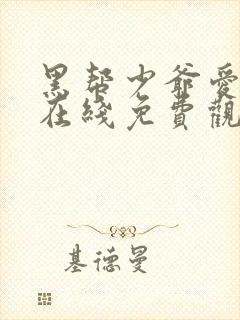 黑帮少爺愛
在綫免費觀
基德曼